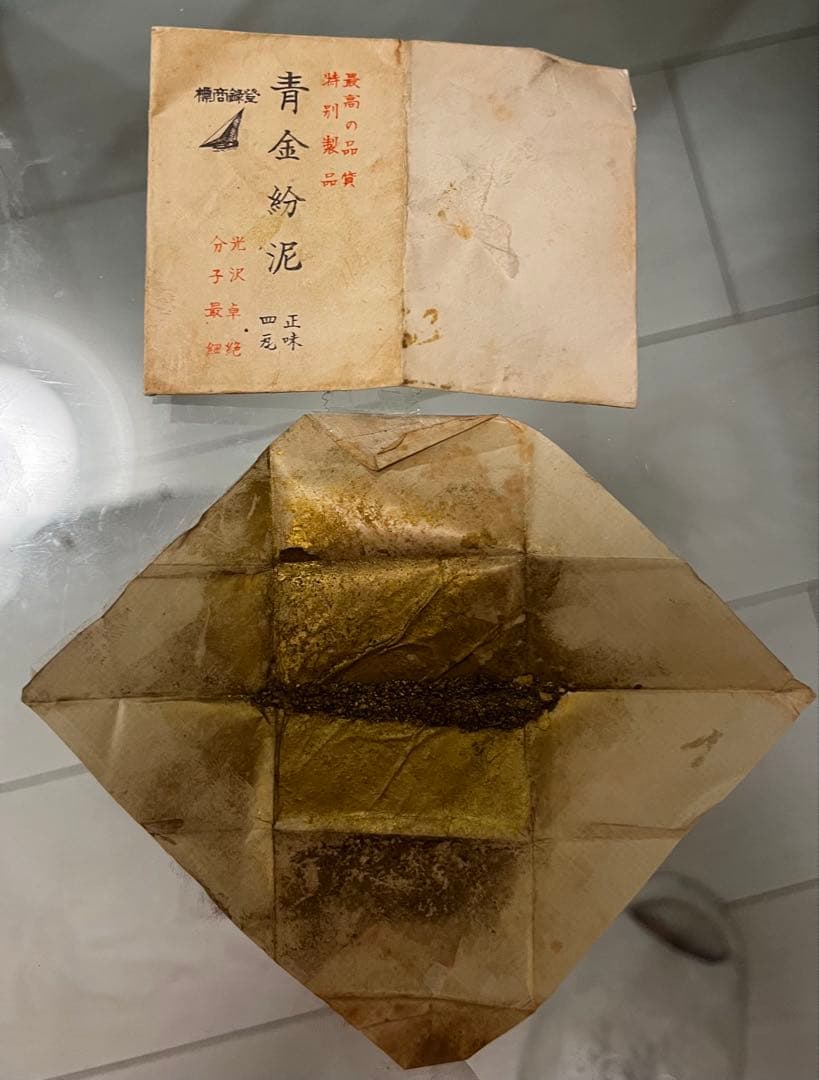 最高の品質
特別製品
青金紛泥
正味
四瓦
登録商標
光沢卓絶
分子最細